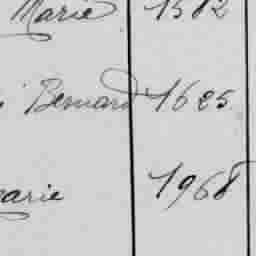 Marie 1582
Bernard 1625
Marie 1968